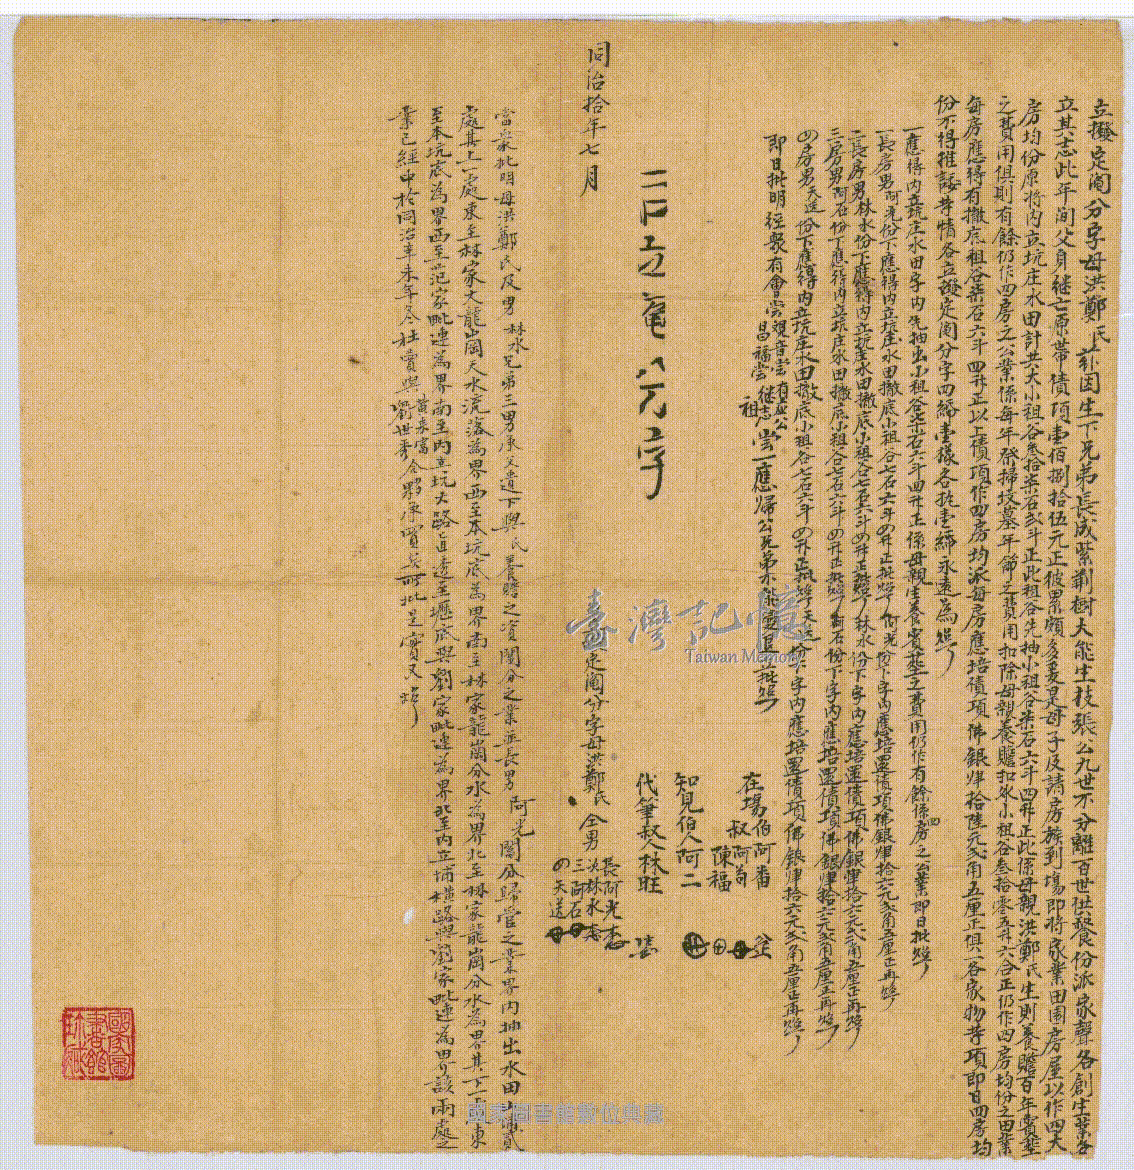 立撥定鬮分字母洪鄭氏茲因生下兄弟長成紫荊樹大能生枝張公九世不分離百世供餐份派家聲各創生業各
立其志此年间父身继亡原带債項壹佰捌拾伍元正彼累頗多爰是母子及請房族到塲即將家業田園房屋以作四大
房均份原將內立坑庄水田計共大小租谷叁拾柒石弍斗正此租谷先抽小租谷柒石六斗四升正此係母親洪鄭氏生則養贍百年賓塟
之費用俱則有餘仍作四房之公業係每年祭掃坟墓年節之費用扣除母親養贍扣外小租谷叁拾零五升六合正仍作四房均份之田業
每房應得有撤底租谷柒石六斗四升正以上債項作四房均派每房應培債項佛銀肆拾陸元弍角五厘正俱一各家物等項即日四房均
份不得推諉等情各立撥定鬮分字四紙壹樣各执壹紙永遠為炤
一應得內立坑庄水田字內先抽出小租谷柒石六斗四升正係母親生養賓塟之費用仍作有餘係四房之公業即日批炤
一長房男阿光份下應得內立坑庄水田撤底小租谷七石六斗四升正批炤阿光份下字內應培還債項佛銀肆拾六元弍角五厘正再炤
二長房男林水份下應得內立坑庄水田撤底小租谷七石六斗四升正批炤林水份下字內應培還債項佛銀肆拾六元弍角五厘正再炤
三房男阿石份下應得內立坑庄水田撤底小租谷七石六斗四升正批炤阿石份下字內應培還債項佛銀肆拾六元弍角五厘正再炤
四房男天送份下應得內立坑庄水田撤底小租谷七石六斗四升正批炤天送份下字內應培還債項佛銀肆拾六元弍角五厘正再炤
即日批明經眾有會嘗觀音嘗有應公昌福嘗继志祖嘗一應歸公兄弟不能變退批炤
在塲伯阿番
叔阿
陳福
知見伯人阿二
代筆叔人林旺
同治拾年七月
定鬮分字母洪鄭氏仝男
長阿光
次林水
三阿石
四天送
當衆批明母洪鄭氏及男林水兄弟三男承父遺下與氏養贍之資鬮分之業並長男阿光鬮分歸管之業界內抽出水田貳
處其上一處東至林家大龍崗天水流落為界西至本坑底為界南至林家龍崗分水為界北至林家龍崗分水為界其下一東
至本坑底為界西至范家毗連為界南至內立坑大路直透至壢底與劉家毗連為界北至內立埔橫路與劉家毗連為界該兩處之
業已經中於同治辛未年尽杜賣與黃來富劉世秀仝夥承買矣所批是實又炤
臺灣記憶
Taiwan Memory
國家圖書館數位典藏
國家圖書館珍藏